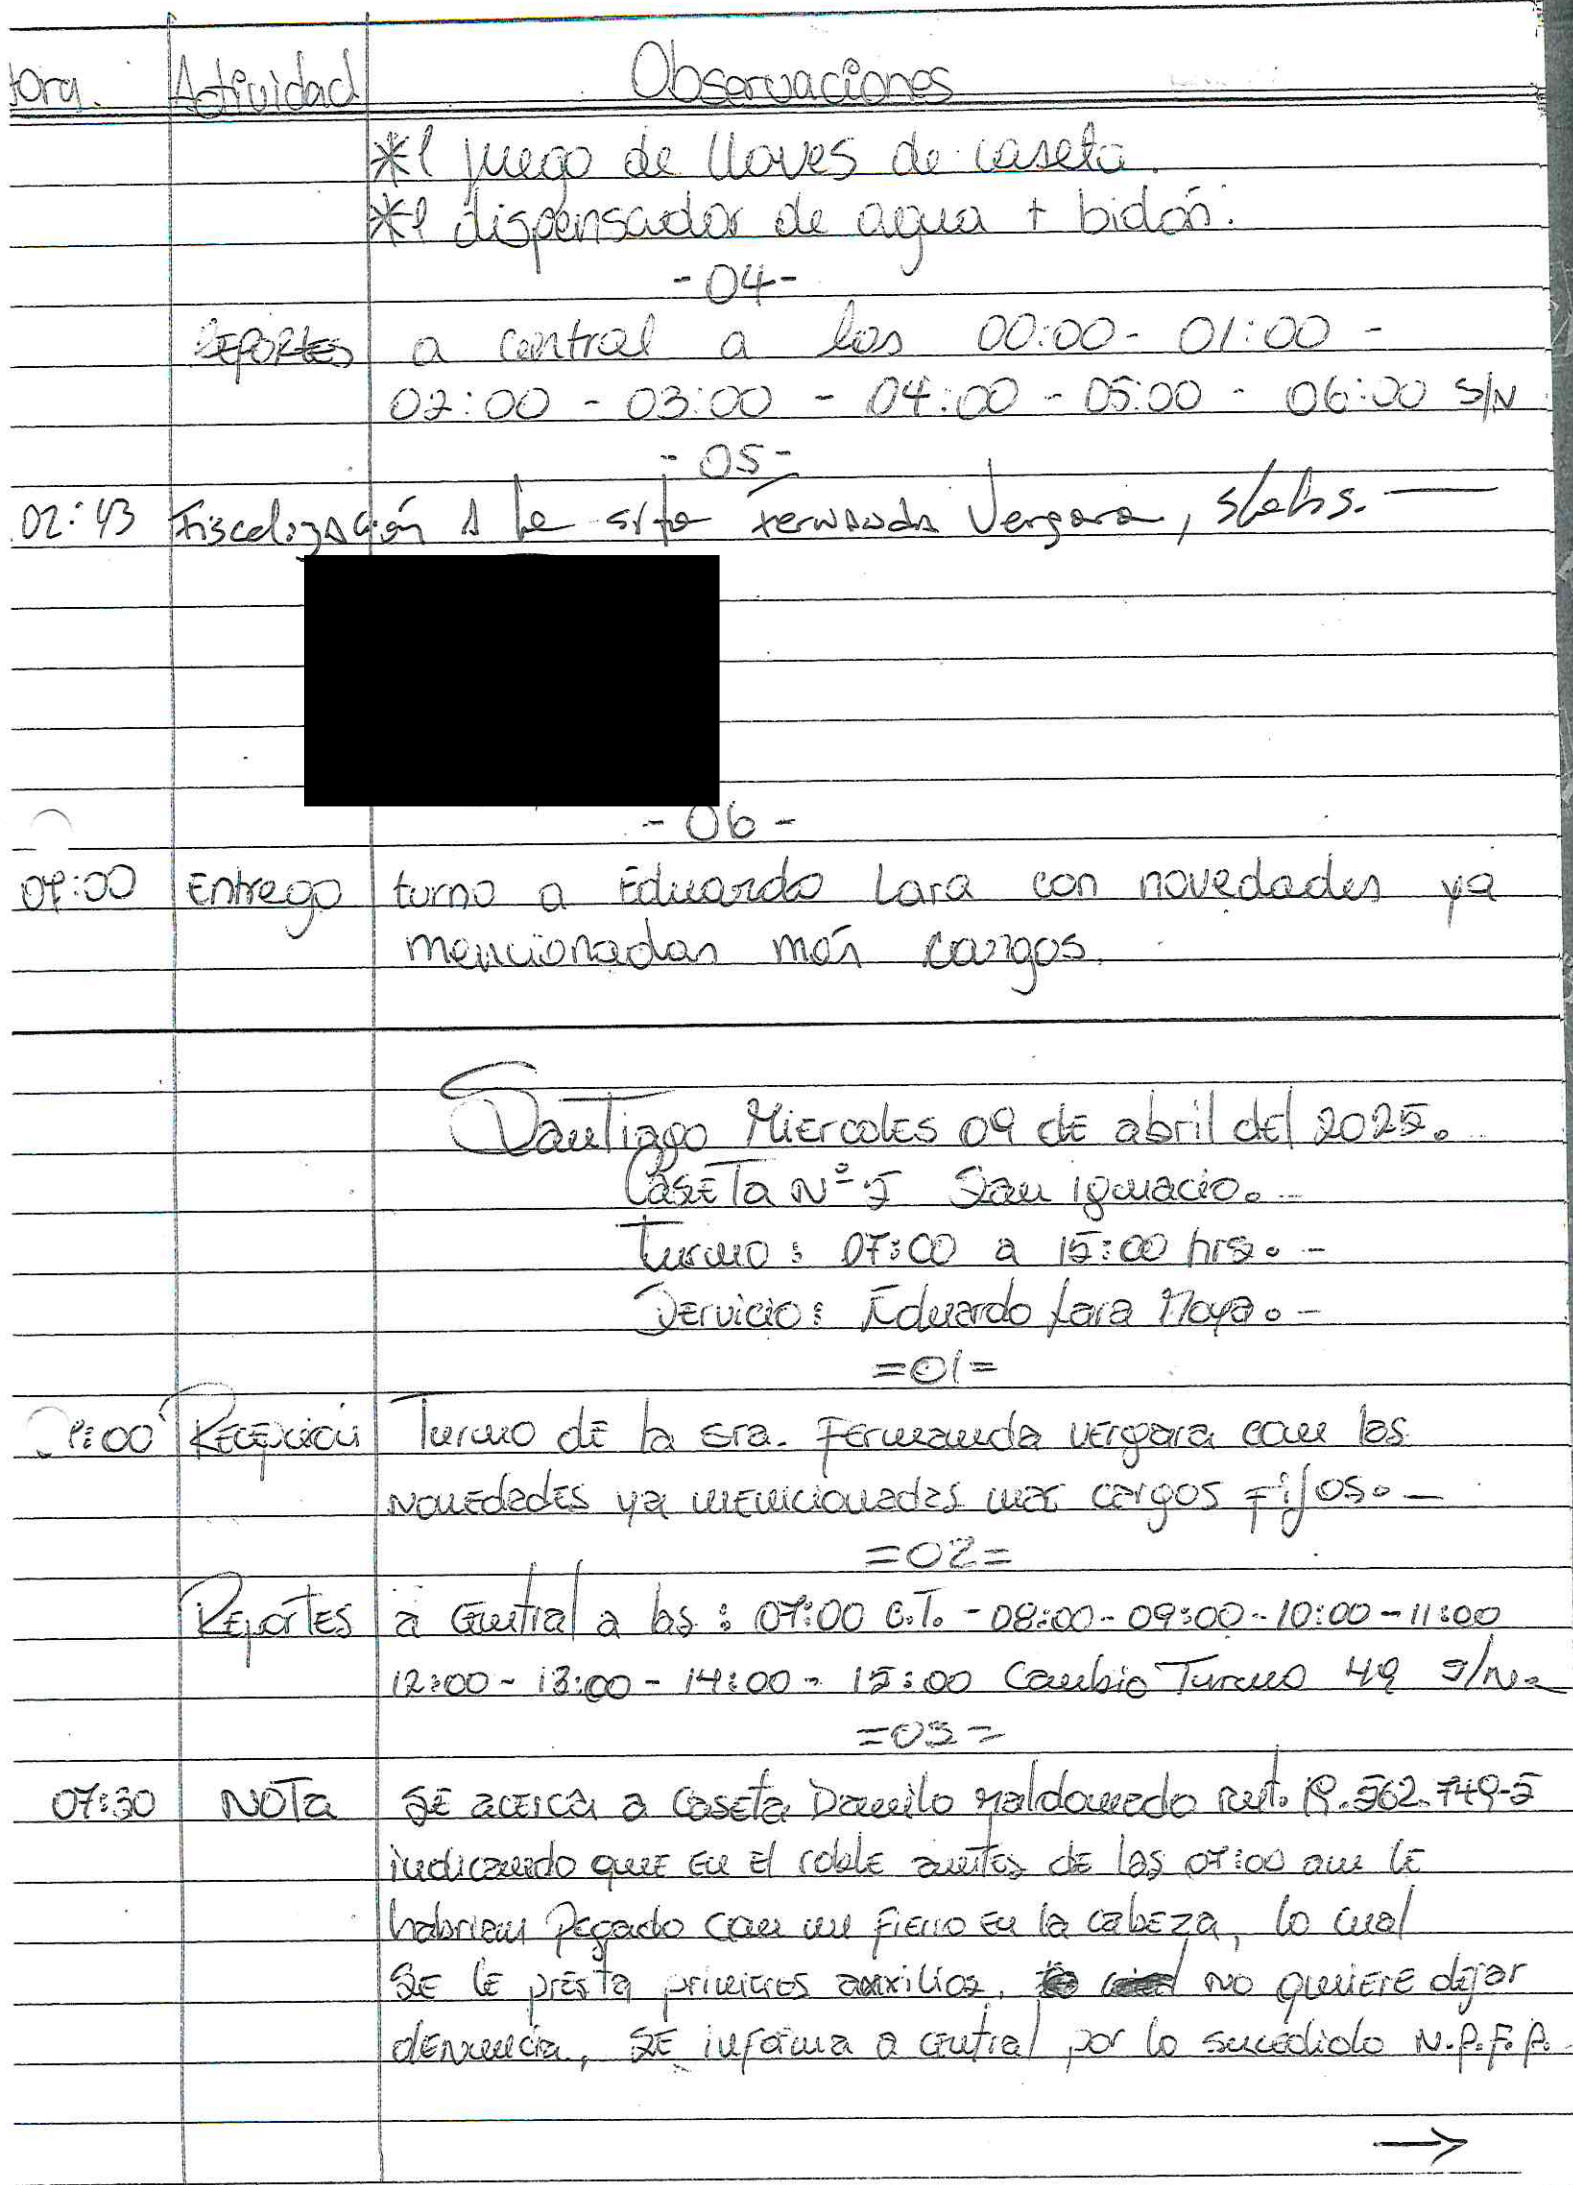 Hora. Actividad Observaciones
*1 juego de llaves de caseta.
*1 dispensador de agua + bidón.
-04-
Reportes a central a las 00:00 - 01:00 -
02:00 - 03:00 - 04:00 - 05:00 - 06:00 S/N
-05-
02:43 Fiscalización A la srta Fernanda Vergara, s/obs.
-06-
07:00 Entrego turno a Eduardo Lara con novedades ya
mencionadas más cargos.
Santiago Miercoles 09 de abril del 2025.
Caseta Nº 5 San ignacio.-
Turno : 07:00 a 15:00 hrs.-
Servicio: Eduardo Lara Moya.-
=01=
07:00 Recepción Turno de la sra. Fernanda vergara con las
novedades ya mencionadas mas cargos fijos.-
=02=
Reportes a Central a las : 07:00 C.T. - 08:00 - 09:00 - 10:00 - 11:00
12:00 - 13:00 - 14:00 - 15:00 Cambio Turno 49 S/N.-
=03=
07:30 NOTA SE acerca a Caseta Danilo Maldonado rut. 19.562.749-5
indicando que en el roble antes de las 07:00 am le
habrian pegado con un fierro en la cabeza, lo cual
se le presta primeros auxilios, no quiere dejar
denuncia, se informa a central por lo sucedido N.P.F.P.
→